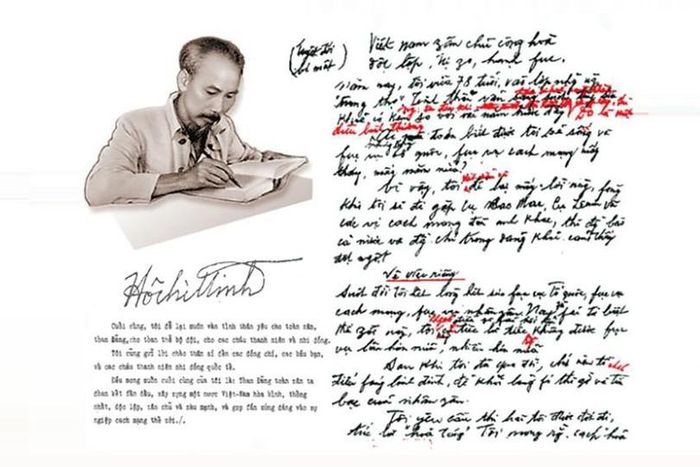 (tuyệt đối
bí mật)
Việt nam zân chủ cộng hoà
độc lập, tự zo, hạnh fúc
năm nay, tôi vừa 78 tuổi, vào lớp những người
"trung thọ". Tinh thần vẫn
năm trước đây. Đó là một
điều bình thường.
toàn biết được tôi sẽ sống và
fục vụ tổ quốc, fục vụ cách mạng mấy
tháng, mấy năm nữa?
Vì vậy, tôi để lại mấy lời này, fòng
khi tôi sẽ đi gặp cụ Các Mác, cụ Lênin và
các vị cách mạng đàn anh khác, thì đồng bào
cả nước và đồng chí trong đảng khỏi cảm thấy
đột ngột.
Về việc riêng
Suốt đời tôi hết lòng hết sức fục vụ tổ quốc, fục vụ
cách mạng, fục vụ nhân zân. Nay zù fải từ biệt
thế zới này, tôi không có điều gì fải hối hận, chỉ tiếc là tiếc không được fục
vụ lâu hơn nữa, nhiều hơn nữa.
Sau khi tôi đã qua đời, chớ nên tổ chức
điếu fúng linh đình, để khỏi lãng fí thì giờ và tiền
bạc của nhân zân.
Tôi yêu cầu thi hài tôi được đốt đi,
tức là "hoả táng". Tôi mong rằng cách hoả
HồchíMinh
Cuối cùng, tôi để lại muôn vàn tình thân yêu cho toàn dân,
toàn Đảng, cho toàn thể bộ đội, cho các cháu thanh niên và nhi đồng.
Tôi cũng gửi lời chào thân ái đến các đồng chí, các bầu bạn,
và các cháu thanh niên nhi đồng quốc tế.
Điều mong muốn cuối cùng của tôi là: Toàn Đảng toàn dân ta
đoàn kết phấn đấu, xây dựng một nước Việt-Nam hòa bình, thống
nhất, độc lập, dân chủ và giàu mạnh, và góp phần xứng đáng vào sự
nghiệp cách mạng thế giới./.